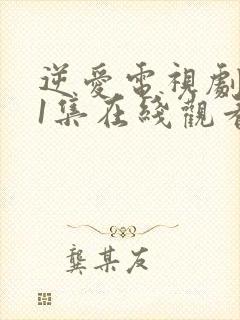 逆愛電視劇
1集在綫觀看
龔某友